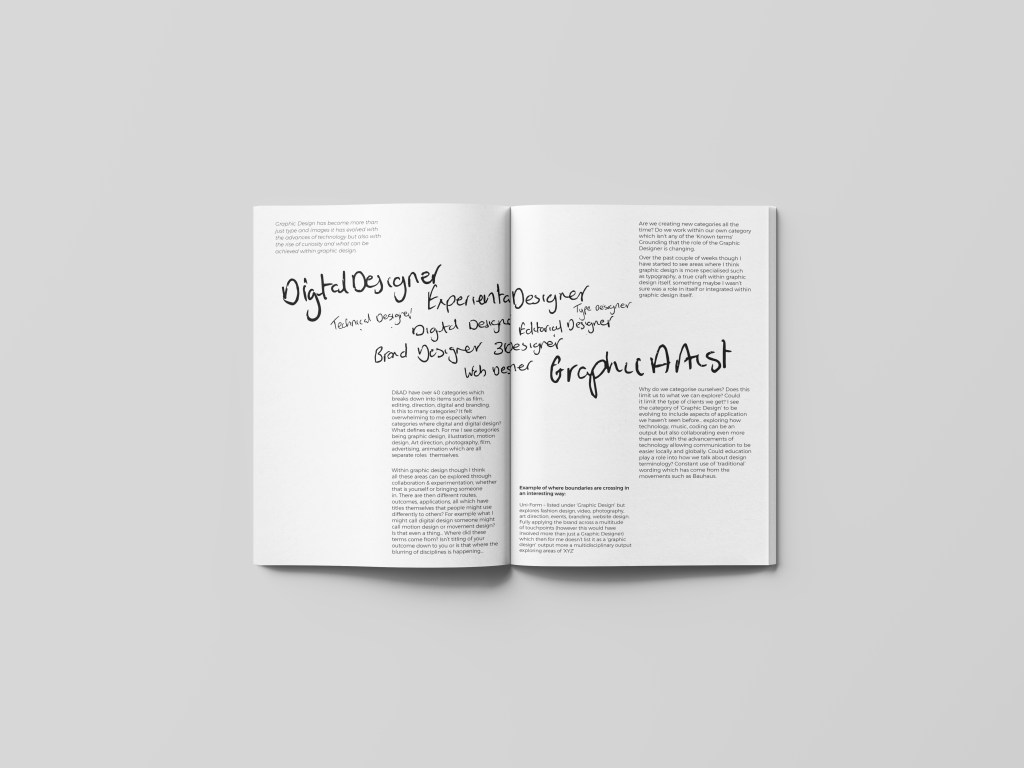 Graphic Design has become more than
just type and images it has evolved with
the advances of technology but also with
the rise of curiosity and what can be
achieved within graphic design.
Digital Designer
Experiential Designer
Technical Designer
Type Designer
Digital Designer
Editorial Designer
Brand Designer
3D Designer
Web Designer
Graphic Artist
D&AD have over 40 categories which
breaks down into items such as film,
editing, direction, digital and branding.
Is this to many categories? It felt
overwhelming to me especially when
categories where digital and digital design?
What defines each. For me I see categories
being graphic design, illustration, motion
design, Art direction, photography, film,
advertising, animation which are all
separate roles themselves.
Within graphic design though I think
all these areas can be explored through
collaboration & experimentation, whether
that is yourself or bringing someone
in. There are then different routes,
outcomes, applications, all which have
titles themselves that people might use
differently to others? For example what I
might call digital design someone might
call motion design or movement design?
Is that even a thing.. Where did these
terms come from? Isn't titling of your
outcome down to you or is that where the
blurring of disciplines is happening...
Example of where boundaries are crossing in
an interesting way:
Uni-Form - listed under 'Graphic Design' but
explores fashion design, video, photography,
art direction, events, branding, website design.
Fully applying the brand across a multitude
of touchpoints (however this would have
involved more than just a Graphic Designer)
which then for me doesn't list it as a 'graphic
design' output more a multidisciplinary output
exploring areas of 'XYZ'
Are we creating new categories all the
time? Do we work within our own category
which isn't any of the 'Known terms'
Grounding that the role of the Graphic
Designer is changing.
Over the past couple of weeks though I
have started to see areas where I think
graphic design is more specialised such
as typography, a true craft within graphic
design itself, something maybe I wasn't
sure was a role in itself or integrated within
graphic design itself.
Why do we categorise ourselves? Does this
limit us to what we can explore? Could
it limit the type of clients we get? I see
the category of 'Graphic Design' to be
evolving to include aspects of application
we haven't seen before, exploring how
technology, music, coding can be an
output but also collaborating even more
than ever with the advancements of
technology allowing communication to be
easier locally and globally. Could education
play a role into how we talk about design
terminology? Constant use of 'traditional'
wording which has come from the
movements such as Bauhaus.